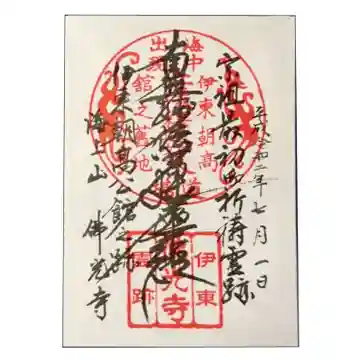 平成令和二年七月一日
宗祖最初御祈祷霊跡
南無妙法蓮華経
伊東朝高公館之跡
海上山 佛光寺
伊東朝高
海中出現
館之舊地
伊東
光寺
霊跡